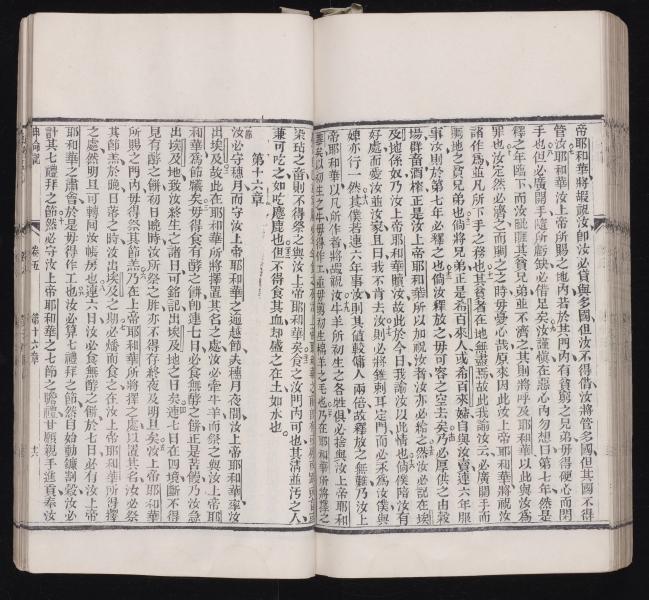 帝耶和華將嘏祝汝即汝必貸與多國但汝不得借汝將管多國但其國不得
管汝耶和華汝上帝所賜之地內若於其門內有貧窮之兄弟毋得硬心而閉
手也但必廣開手隨所虧缺必借足矣汝謹慎在惡心內勿想曰第七年然是
釋之年臨下而汝眦睚其貧兄弟並不濟之其則將呼及耶和華以此與汝為
罪也汝定然必濟之而賙之之時毋憂心哉原來因此汝上帝耶和華將祝汝
諸作為並凡所下手之務也其貧者在地無盡焉故此我諭汝云必廣開手而
賙地之貧兄弟也倘將兄弟正是希百來人或希百來婦自與汝賣連六年服
事汝則於第七年必釋之也倘汝釋放之毋可容之空去矣乃必厚供之由穀
場群畜酒榨正是汝上帝耶和華所以加祝汝者汝亦必給之然汝必記在埃
及地係奴乃汝上帝耶和華贖汝故此於今日我諭汝以此情也倘僕陪汝有
好處而愛汝並汝家且曰我不肯去汝則必將錐剌耳定門而必永為汝僕與
婢亦行一然其僕若連六年事汝則其值較傭人兩倍故釋放之無難乃汝上
帝耶和華以凡所作者將嘏祝汝牛羊所初生之各牲俱必捨與汝上帝耶和
染玷之畜則不得祭之與汝上帝耶和華矣食之汝門內可也其清並汚之人
兼可吃之如吃麞鹿也但不得食其血却盛之在土如水也
第十六章
汝必守穗月而守汝上帝耶和華之逾越節夫穗月夜間汝上帝耶和華家汝
出埃及故此在耶和華所將擇置其名之處汝必牽牛羊而祭之與汝上帝耶
和華為節犧矣毋得食有酵之餅卽連七日必食無酵之餅正是苦饅乃汝急
出埃及地致汝終生之諸日可銘記出埃及地之日矣連七日在四境斷不得
見有酵之餅初日晚時汝所祭之牲亦不得存終夜及明旦矣汝上帝耶和華
所賜之門內毋得祭其節羔乃在上帝耶和華所將擇之處以置其名汝必祭
其節羔於晚日落之時汝出埃及之期必燔而食之在汝上帝耶和華所得擇
之處然明旦可轉囘汝帳房也連六日汝必食無酵之餅於七日必有汝上帝
耶和華之肅會於是毋得作工也汝必算七禮拜之節然自始動鐮割穀汝必
計其七禮拜之節然必守汝上帝耶和華之七節之贍禮甘願親手進貢奉汝
卷五
第十六章